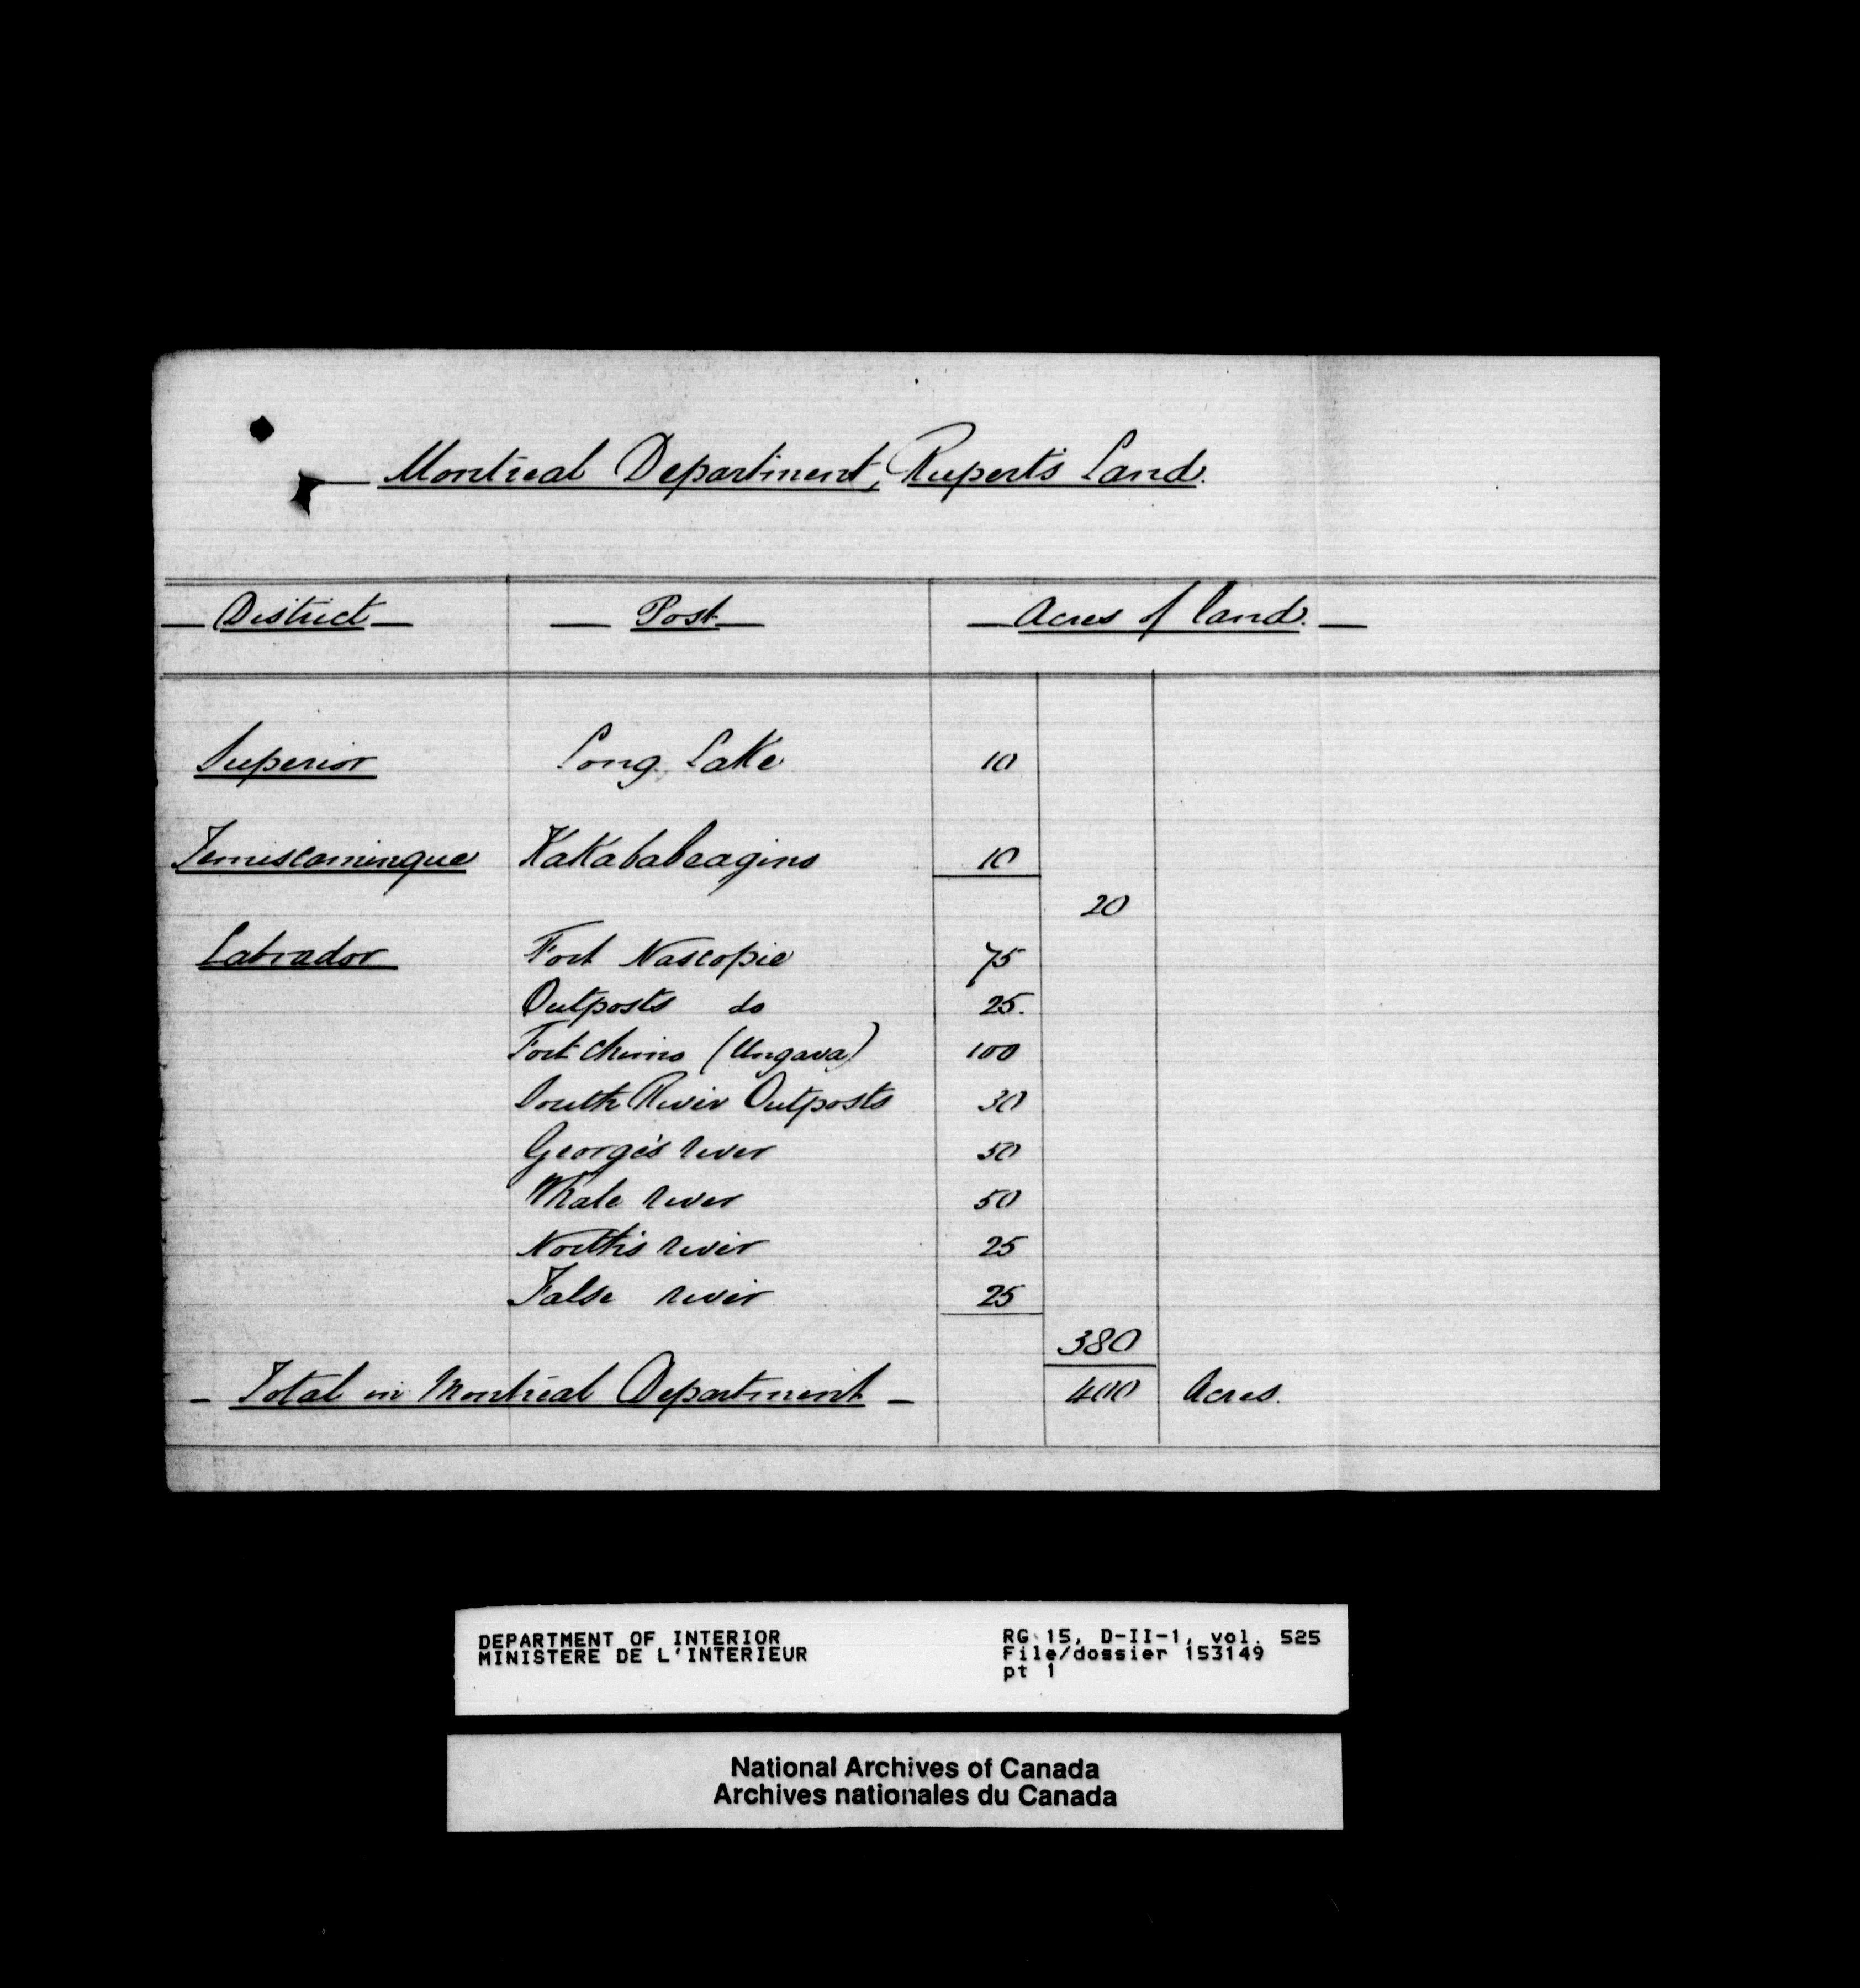 Montreal Department, Rupert's Land.
District Post Acres of land.
Superior Long Lake 10
Temiscamingue Kakababeagino 10
20
Labrador Fort Nascopie 75
Outposts do 25.
Fort Chimo (Ungava) 100
South River Outposts 30
George's river 50
Whale river 50
North's river 25
False river 25
380
Total in Montreal Department 400 Acres.
DEPARTMENT OF INTERIOR
MINISTERE DE L'INTERIEUR
RG 15, D-II-1, vol. 525
File/dossier 153149
pt 1
National Archives of Canada
Archives nationales du Canada